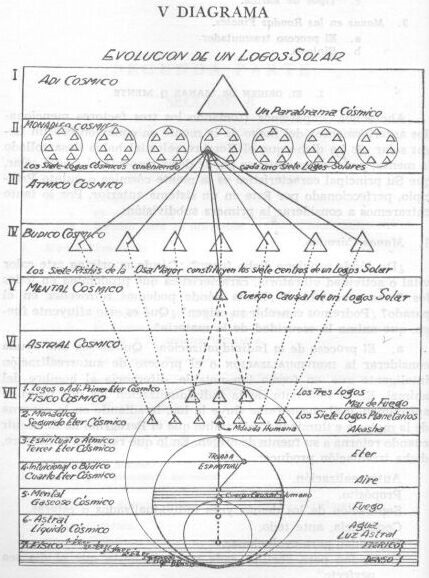 V DIAGRAMA
EVOLUCION DE UN LOGOS SOLAR
I
ADI COSMICO
Un Parabrama Cósmico
II
MONADICO COSMICO
Los Siete Logos Cósmicos conteniendo cada uno Siete Logos Solares
III
ATMICO COSMICO
IV
BUDICO COSMICO
Los Siete Rishis de la Osa Mayor constituyen los siete centros de un Logos Solar
V
MENTAL COSMICO
Cuerpo Causal de un Logos Solar
VI
ASTRAL COSMICO
VII
1. Logos o Adi-Primer Eter Cósmico
FISICO COSMICO
Los Tres Logos
Mar de Fuego
2. Monádico
Segundo Eter Cósmico
Los Siete Logos Planetarios
Mónada Humana
Akasha
3. Espiritual o Atmico
Tercer Eter Cósmico
TRIADA
ESPIRITUAL
Eter
4. Intuicional o Búdico
Cuarto Eter Cósmico
Aire
5. Mental
Gaseoso Cósmico
Cuerpo Causal Humano
Fuego
6. Astral
Líquido Cósmico
Agua
Luz Astral
7. FISICO
ETERICO
DENSO